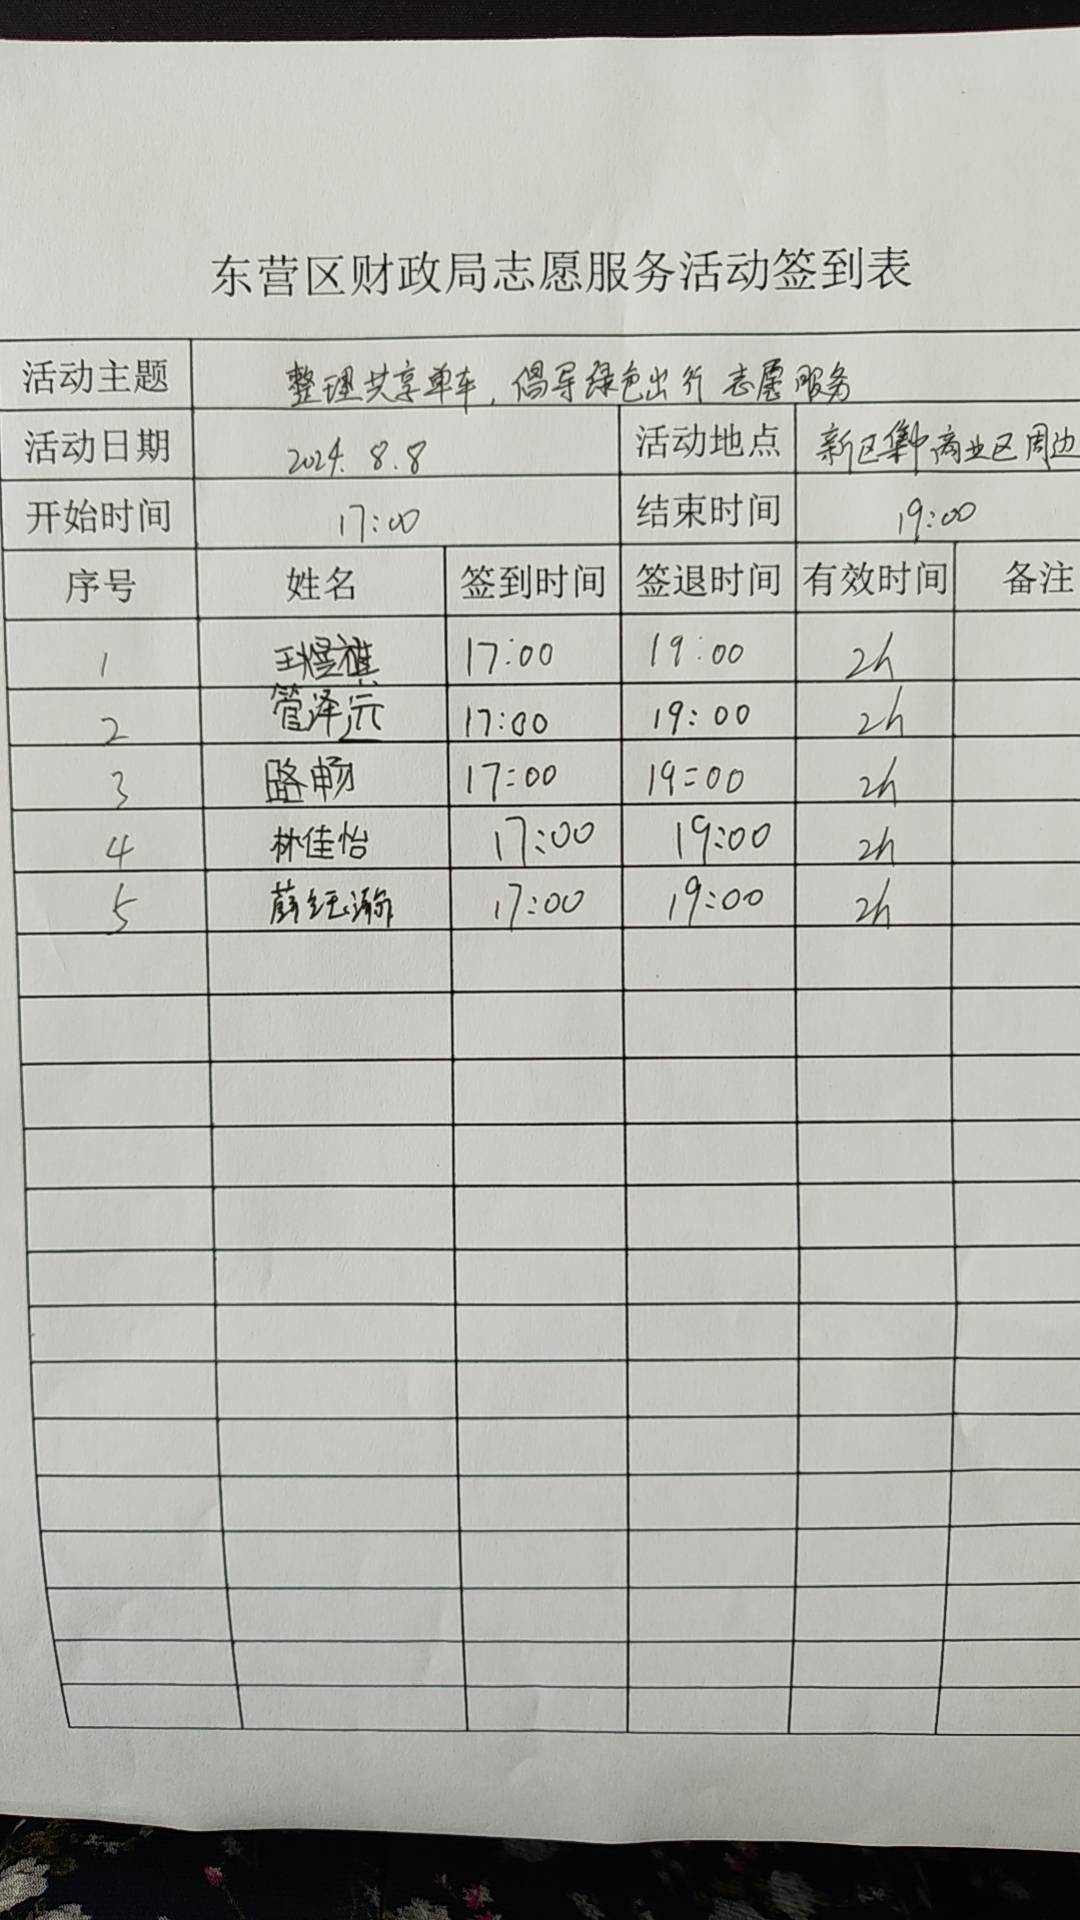 东营区财政局志愿服务活动签到表
活动主题 整理共享单车，倡导绿色出行 志愿服务
活动日期 2024.8.8 活动地点 新区集中商业区周边
开始时间 17:00 结束时间 19:00
序号 姓名 签到时间 签退时间 有效时间 备注
1 王煜祺 17:00 19:00 2h
2 管泽元 17:00 19:00 2h
3 路畅 17:00 19:00 2h
4 林佳怡 17:00 19:00 2h
5 薛 17:00 19:00 2h